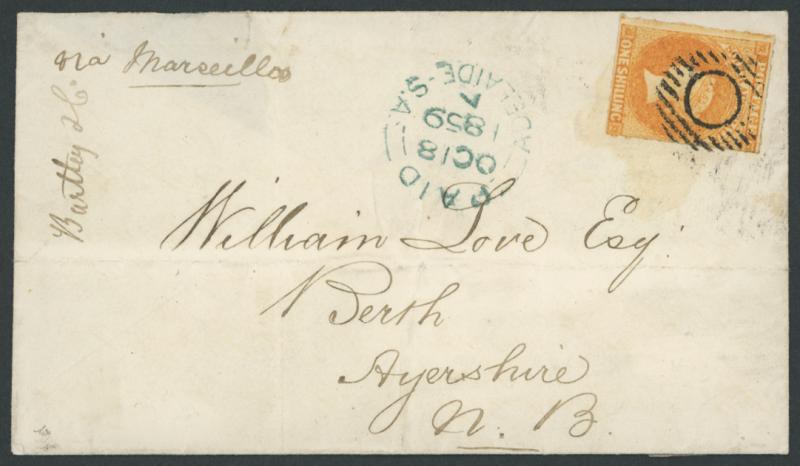 via Marseilles
Bartley & Co.
ONE SHILLING
ADELAIDE-S.A.
7
1859
OC 18
PAID
William Love Esq.
Berth
Ayershire
N. B.